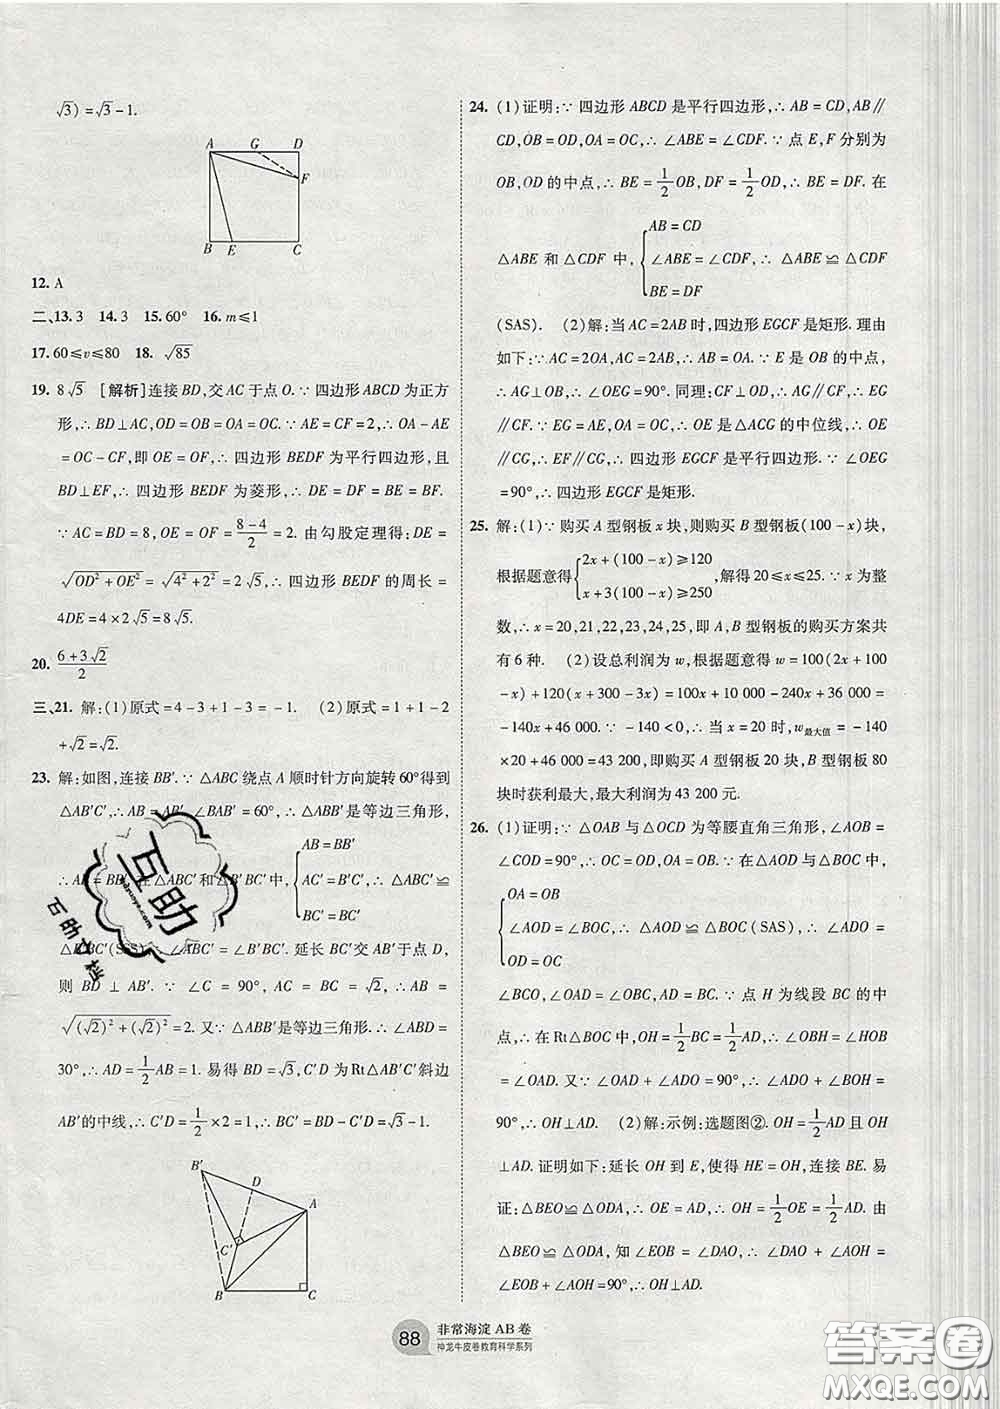 √3) = √3 − 1.
A G D
F
B E C
12. A
二、13. 3 14. 3 15. 60° 16. m ≤ 1
17. 60 ≤ v ≤ 80 18. √85
19. 8√5 [解析]连接 BD,交 AC 于点 O. ∵ 四边形 ABCD 为正方
形,∴ BD ⊥ AC, OD = OB = OA = OC. ∵ AE = CF = 2,∴ OA − AE
= OC − CF,即 OE = OF,∴ 四边形 BEDF 为平行四边形,且
BD ⊥ EF,∴ 四边形 BEDF 为菱形,∴ DE = DF = BE = BF.
∵ AC = BD = 8, OE = OF = (8 − 4)/2 = 2. 由勾股定理得: DE =
√(OD² + OE²) = √(4² + 2²) = 2√5,∴ 四边形 BEDF 的周长 =
4DE = 4 × 2√5 = 8√5.
20. (6 + 3√2)/2
三、21. 解:(1)原式 = 4 − 3 + 1 − 3 = −1. (2)原式 = 1 + 1 − 2
+ √2 = √2.
23. 解:如图,连接 BB′. ∵ △ABC 绕点 A 顺时针方向旋转60°得到
△AB′C′,∴ AB = AB′, ∠BAB′ = 60°,∴ △ABB′是等边三角形,
∴ AB = BB′, 在 △ABC′和△B′BC′中, { AB = BB′
AC′ = B′C′,∴ △ABC′ ≌
BC′ = BC′
△B′BC′(SSS),∴ ∠ABC′ = ∠B′BC′. 延长 BC′交 AB′于点 D,
则 BD ⊥ AB′. ∵ ∠C = 90°, AC = BC = √2,∴ AB =
√((√2)² + (√2)²) = 2. 又∵ △ABB′是等边三角形,∴ ∠ABD =
30°,∴ AD = 1/2 AB = 1. 易得 BD = √3, C′D 为Rt△AB′C′斜边
AB′的中线,∴ C′D = 1/2 × 2 = 1,∴ BC′ = BD − C′D = √3 − 1.
B′
D
A
C′
B C
24. (1)证明:∵ 四边形 ABCD 是平行四边形,∴ AB = CD, AB∥
CD, OB = OD, OA = OC,∴ ∠ABE = ∠CDF. ∵ 点 E, F 分别为
OB, OD 的中点,∴ BE = 1/2 OB, DF = 1/2 OD,∴ BE = DF. 在
△ABE 和 △CDF 中, { AB = CD
∠ABE = ∠CDF,∴ △ABE ≌ △CDF
BE = DF
(SAS). (2)解:当 AC = 2AB 时,四边形 EGCF 是矩形. 理由
如下:∵ AC = 2OA, AC = 2AB,∴ AB = OA. ∵ E 是 OB 的中点,
∴ AG ⊥ OB,∴ ∠OEG = 90°. 同理: CF ⊥ OD,∴ AG∥CF,∴ EG
∥CF. ∵ EG = AE, OA = OC,∴ OE 是 △ACG 的中位线,∴ OE
∥CG,∴ EF∥CG,∴ 四边形 EGCF 是平行四边形. ∵ ∠OEG
= 90°,∴ 四边形 EGCF 是矩形.
25. 解:(1)∵ 购买 A 型钢板 x 块,则购买 B 型钢板(100 − x)块,
根据题意得 { 2x + (100 − x) ≥ 120
x + 3(100 − x) ≥ 250 ,解得 20 ≤ x ≤ 25. ∵ x 为整
数,∴ x = 20,21,22,23,24,25,即 A, B 型钢板的购买方案共
有 6 种. (2)设总利润为 w,根据题意得 w = 100(2x + 100
− x) + 120(x + 300 − 3x) = 100x + 10 000 − 240x + 36 000 =
−140x + 46 000. ∵ −140 < 0,∴ 当 x = 20 时, w最大值 = −140
× 20 + 46 000 = 43 200,即购买 A 型钢板 20 块, B 型钢板 80
块时获利最大,最大利润为 43 200 元.
26. (1)证明:∵ △OAB 与△OCD 为等腰直角三角形,∴ ∠AOB =
∠COD = 90°,∴ OC = OD, OA = OB. ∵ 在△AOD 与△BOC 中,
{ OA = OB
∠AOD = ∠BOC,∴ △AOD ≌ △BOC(SAS),∴ ∠ADO =
OD = OC
∠BCO, ∠OAD = ∠OBC, AD = BC. ∵ 点 H 为线段 BC 的中
点,∴ 在 Rt△BOC 中, OH = 1/2 BC = 1/2 AD,∴ ∠OBH = ∠HOB
= ∠OAD. 又∵ ∠OAD + ∠ADO = 90°,∴ ∠ADO + ∠BOH =
90°,∴ OH ⊥ AD. (2)解:示例:选题图②. OH = 1/2 AD 且 OH
⊥ AD. 证明如下:延长 OH 到 E,使得 HE = OH,连接 BE. 易
证:△BEO ≌ △ODA,∴ OE = AD,∴ OH = 1/2 OE = 1/2 AD. 由
△BEO ≌ △ODA, 知 ∠EOB = ∠DAO,∴ ∠DAO + ∠AOH =
∠EOB + ∠AOH = 90°,∴ OH ⊥ AD.
88
非常海淀 AB 卷
神龙牛皮卷教育科学系列
互助
互助文档
答案圈
MXQE.COM